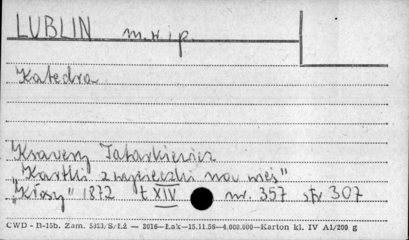 LUBLIN m. w. i p.
Katedra
Ksawery Tatarkiewicz
„Kartki z wycieczki na wieś"
„Kłosy" 1872 t XIV nr. 357 str 307
CWD - B-15b. Zam. 5413/S/Łż — 3016—Łak—15.11.56—4.000.000—Karton kl. IV A1/200 g